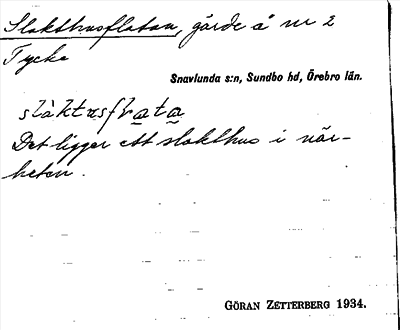 Slakthusflatan, gärde å nr 2
Tycke
Snavlunda s:n, Sundbo hd, Örebro län.
slàktusflata
Det ligger ett slakthus i när-
heten.
GÖRAN ZETTERBERG 1934.